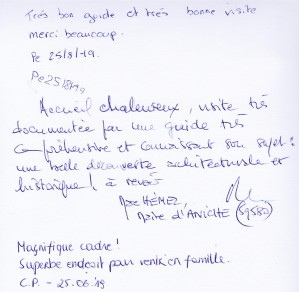 Très bon guide et très bonne visite
merci beaucoup.
Pe 25/8/19.
Pe 25/8/19
Accueil chaleureux, visite très
documentée par une guide très
compréhensive et connaissant son sujet:
une belle découverte architecturale et
historique! à revoir
HEMEZ,
d'ANICHE (59580)
Magnifique cadre!
Superbe endroit pour venir en famille.
C.P. - 25.08.19